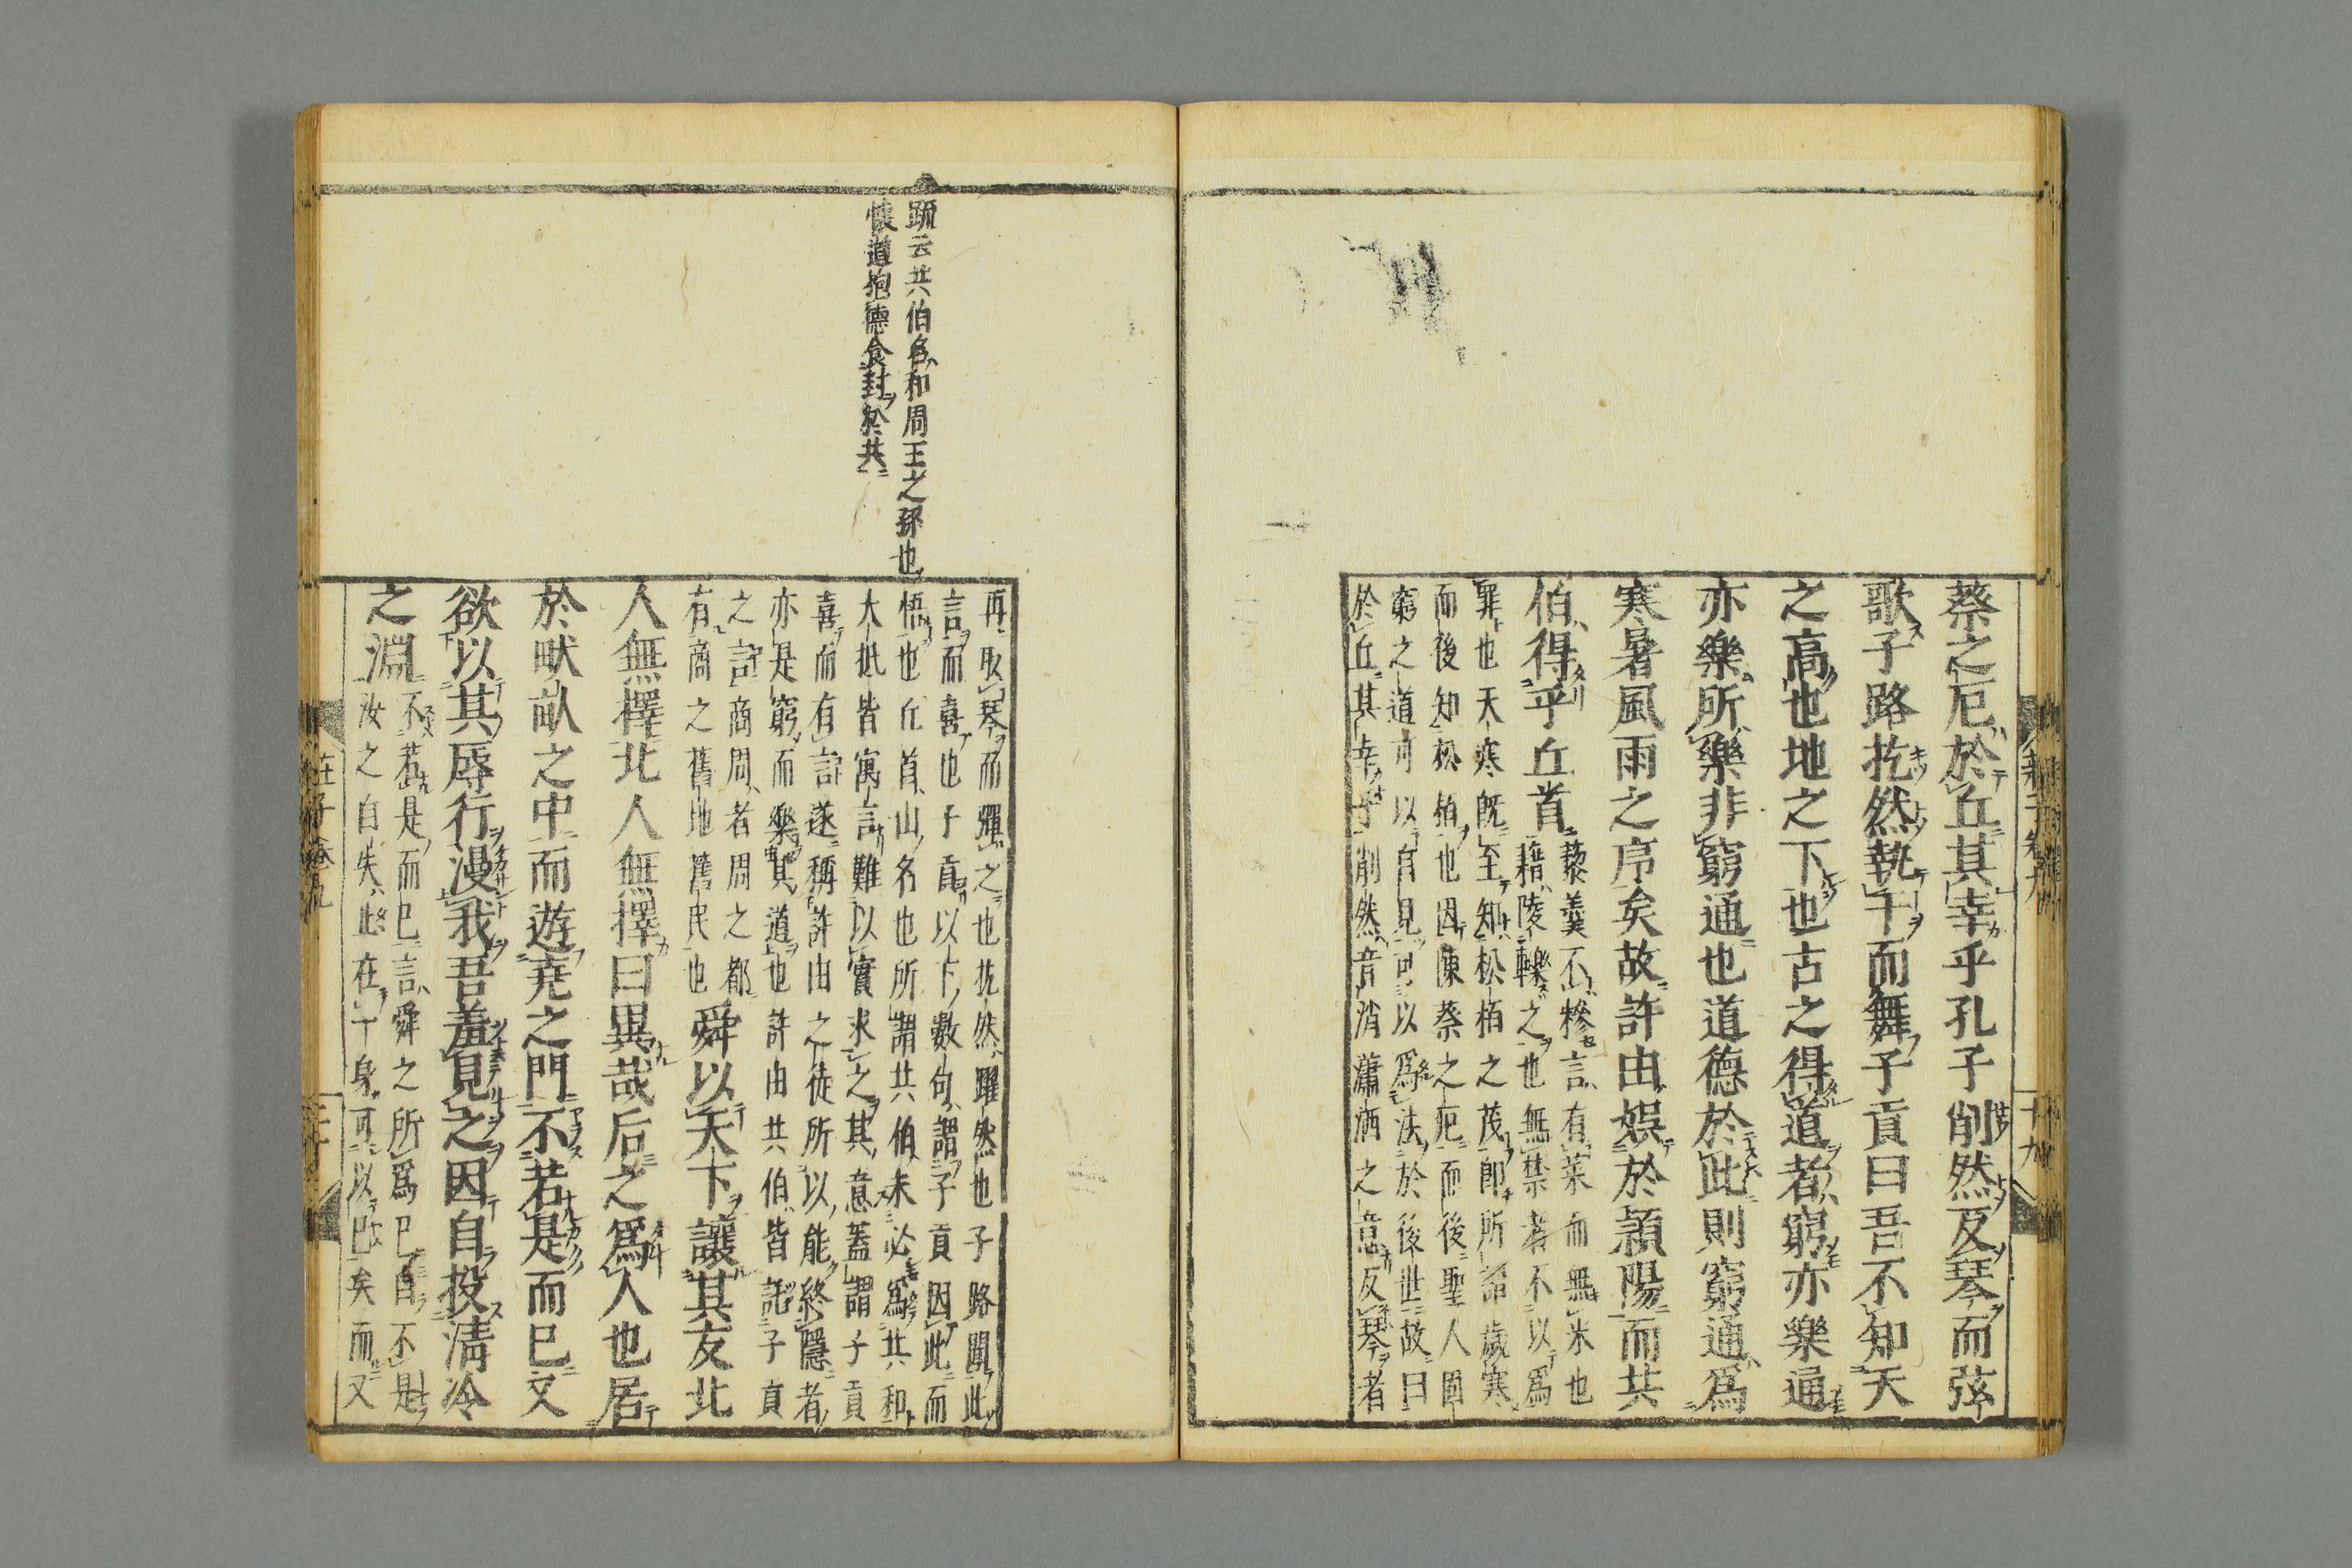 蔡之厄於丘其幸乎孔子削然反琴而弦
歌子路扢然執干而舞子貢曰吾不知天
之高也地之下也古之得道者窮亦樂通
亦樂所樂非窮通也道德於此則窮通爲
寒暑風雨之序矣故許由娯於頴陽而共
伯得乎丘首
藜羹不糝言有菜而無米也
藉陵轢之也無禁者不以爲
罪也天寒既至知松栢之茂即所謂歲寒
而後知松栢也因陳蔡之厄而後聖人固
窮之道可以自見可以爲法於後世故曰
於丘其幸乎削然音消瀟洒之意反琴者
再取琴而彈之也扢然躍然也子路聞此
言而喜也子貢以下數句謂子貢因此而
悟也丘首山名也所謂共伯未必爲共和
大抵皆寓言難以實求之其意蓋謂子貢
喜而有言遂稱許由之徒所以能終隱者
亦是窮而樂其道也許由共伯皆託子貢
之言商周者周之都
有商之舊地舊民也
舜以天下讓其友北
人無擇北人無擇曰異哉后之爲人也居
於畎畝之中而遊堯之門不若是而已又
欲以其辱行漫我吾羞見之因自投淸冷
之淵
不若是而已言舜之所爲已自不是
汝之自失止在一身可以已矣而又
疏云共伯名和周王之孫也
懷道抱德食封於共
莊子卷九